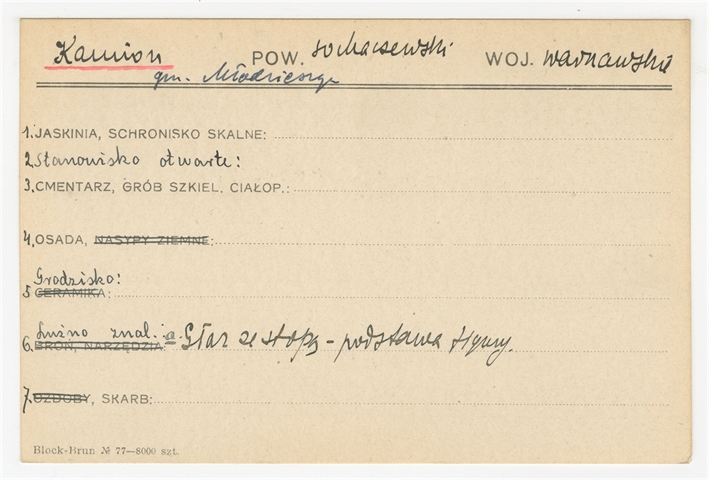 Kamion POW. sochaczewski WOJ. warszawskie
gm. Młodzieszyn
1. JASKINIA, SCHRONISKO SKALNE:
2. Stanowisko otwarte:
3. CMENTARZ, GRÓB SZKIEL. CIAŁOP.:
4. OSADA, NASYPY ZIEMNE:
Grodzisko:
5 CERAMIKA:
Luźno znal.: a Głaz ze stopą - podstawa figury.
6. BROŃ, NARZĘDZIA:
7. OZDOBY, SKARB:
Block-Brun № 77—8000 szt.